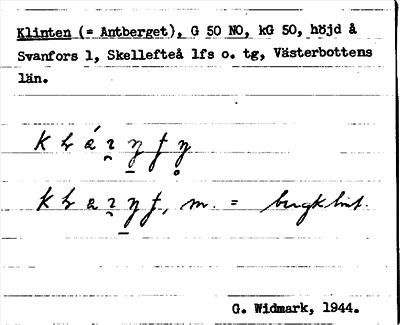 Klinten (= Antberget), G 50 NO, kG 50, höjd å
Svanfors 1, Skellefteå lfs o. tg, Västerbottens
län.
m. = bergklint.
G. Widmark, 1944.